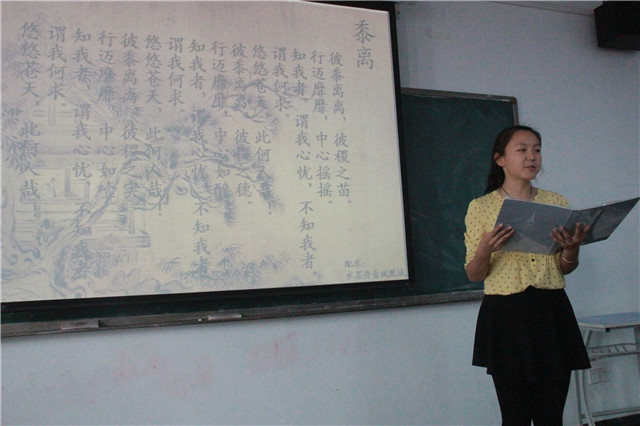 黍离
彼黍离离，彼稷之苗。
行迈靡靡，中心摇摇。
知我者，谓我心忧，不知我者，
谓我何求。
悠悠苍天，此何人哉！
彼黍离离，彼稷之穗。
行迈靡靡，中心如醉。
知我者，谓我心忧，不知我者，
谓我何求。
悠悠苍天，此何人哉！
彼黍离离，彼稷之实。
行迈靡靡，中心如噎。
知我者，谓我心忧，不知我者，
谓我何求。
悠悠苍天，此何人哉！
配乐：